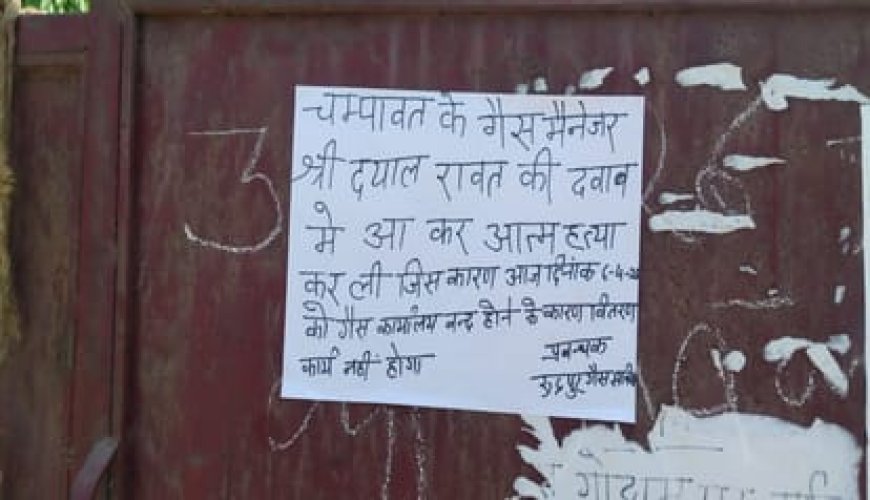 चम्पावत के गैस मैनेजर
श्री दयाल रावत की दवाव
मे आ कर आत्म हत्या
कर ली जिस कारण आज दिनांक 6-4-
को गैस कार्यालय बन्द होने के कारण वितरण
कार्य नहीं होगा
प्रबन्धक
रुद्रपुर गैस सर्विस
3
गोदाम